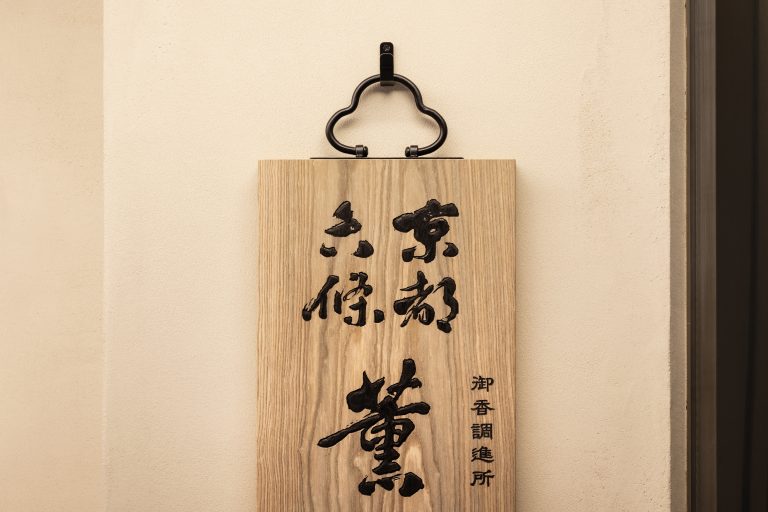 御香調進所
京都
六條
薫